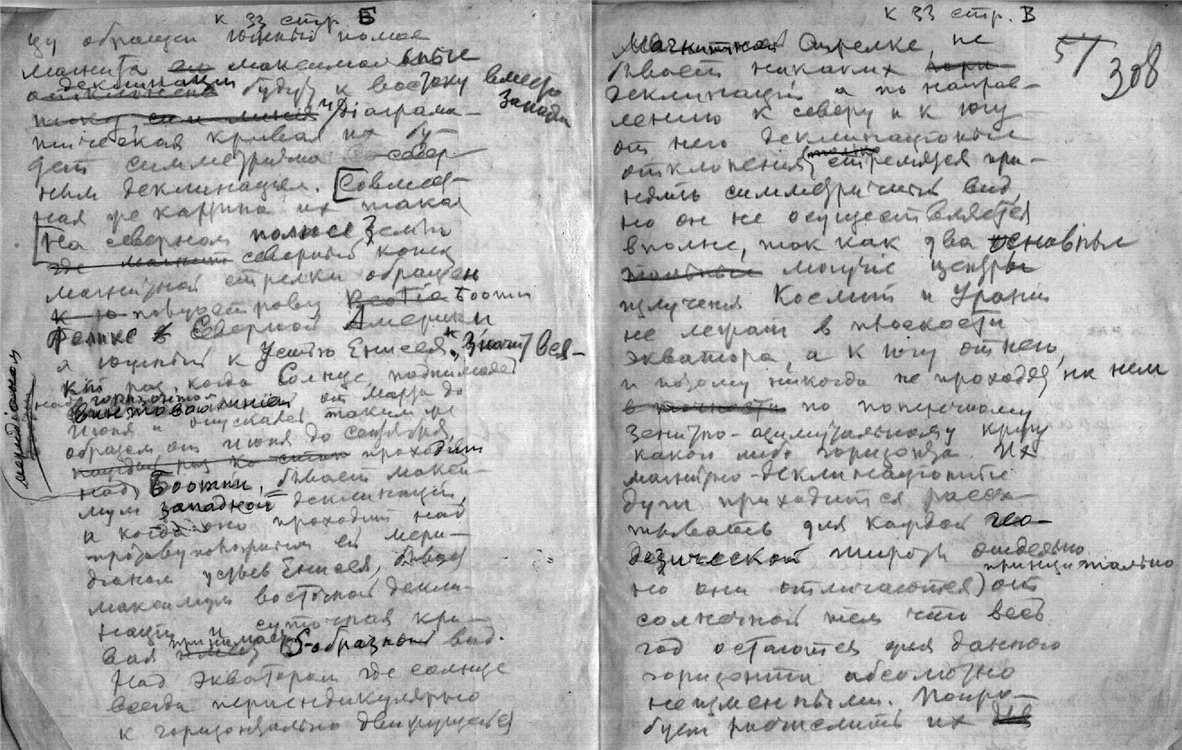 к 33 стр. Б
цу обращен южный полюс
магнита максимальные
деклинации будут к востоку вместо
запада
Диаграма-
тическая кривая их бу-
дет симметрична север
ным деклинациям. Совмест-
ная же картина их такая
На северном полюсе Земли
где магнит северный конец
магнитной стрелки обращен
к ю полуострову Боотии
Феликс в Северной Америки
а южный к Устью Енисея. Значит вся-
кий раз, когда Солнце поднимает
над горизонтом
от марта до
июня и опускает таким же
образом от июня до сентября
проходит
над Боотии, бывает макси-
мум западной деклинаций,
а когда оно проходит над
противуположным ей мери-
дианом устьев Енисея, бывает
максимум восточной декли-
нации и суточная кри-
вая принимает S-образный вид.
Над экватором где солнце
всегда перпендикулярно
к горизонтально движущейся
к 33 стр. В
57
308
Магнитной стрелке, не
бывает никаких
деклинаций а по направ-
лению к северу и к югу
от него деклинационные
отклонения стремятся при-
нять симметричный вид,
но он не осуществляется
вполне, так как два основные
могучие центры
излучения Космит и Ураний
не лежат в плоскости
экватора, а к югу от него,
и потому никогда не проходят на нем
в точности по поперечному
зенитно-азимутальному кругу
какого либо горизонта. Их
магнитно-деклинационные
дуги приходится рассчи-
тывать для каждой гео-
дезической широты отдельно
принципиально
но они отличаются от
солнечной тем что весь
год остаются для данного
горизонта абсолютно
неизменными. Попро-
буем вычислить их